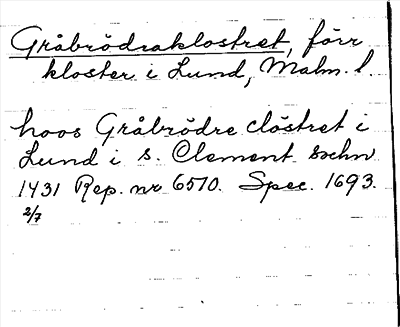 Gråbrödraklostret, förr
kloster i Lund, Malm. l.
hoos Gråbrödre clöstret i
Lund i S. Clement sochn
1431 Rep. nr 6570. Spec. 1693.
2/7